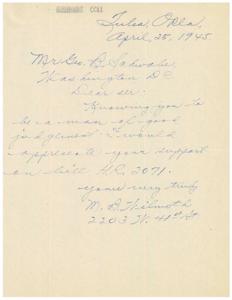 Tulsa, Okla,
April, 25, 1945
Mr Geo. B. Schwabe,
Washington D C
Dear ser:
Knowing you to
be a man of good
judgment I would
appreceate your support
on bill H.R. 2071.
yours very truly
M. B. Wilmoth
2203 W. 41st St